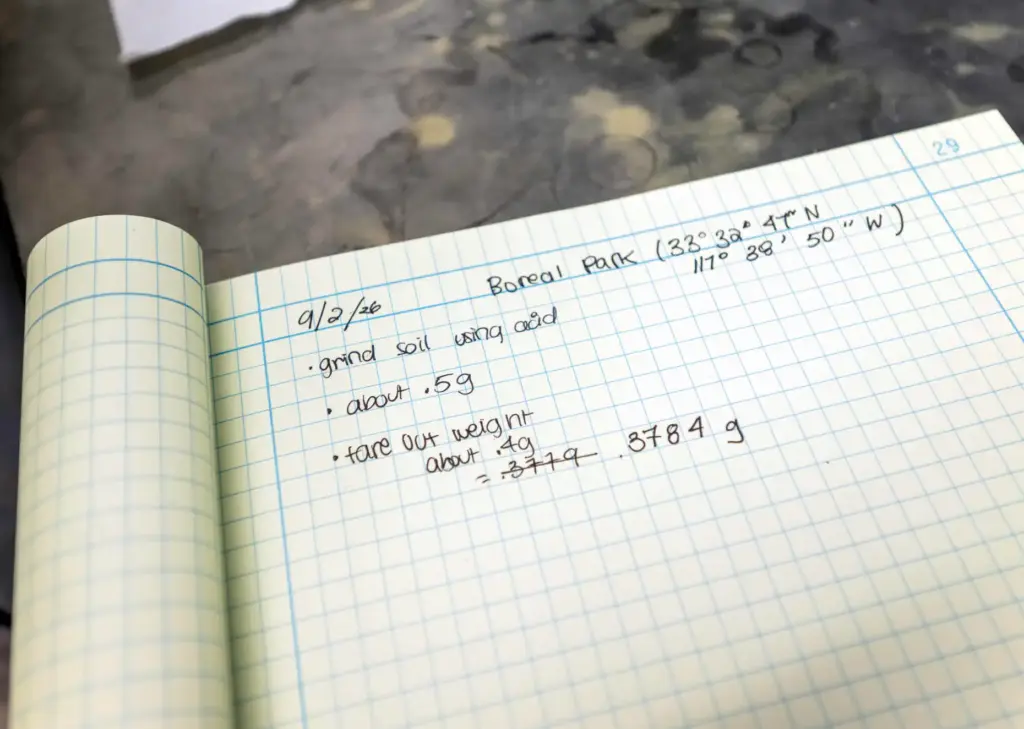 29
Boreal Park (33° 32° 47" N
117° 38' 50" W)
9/2/26
• grind soil using acid
• about .5g
• tare out weight
about .4g
= .3779 .3784 g